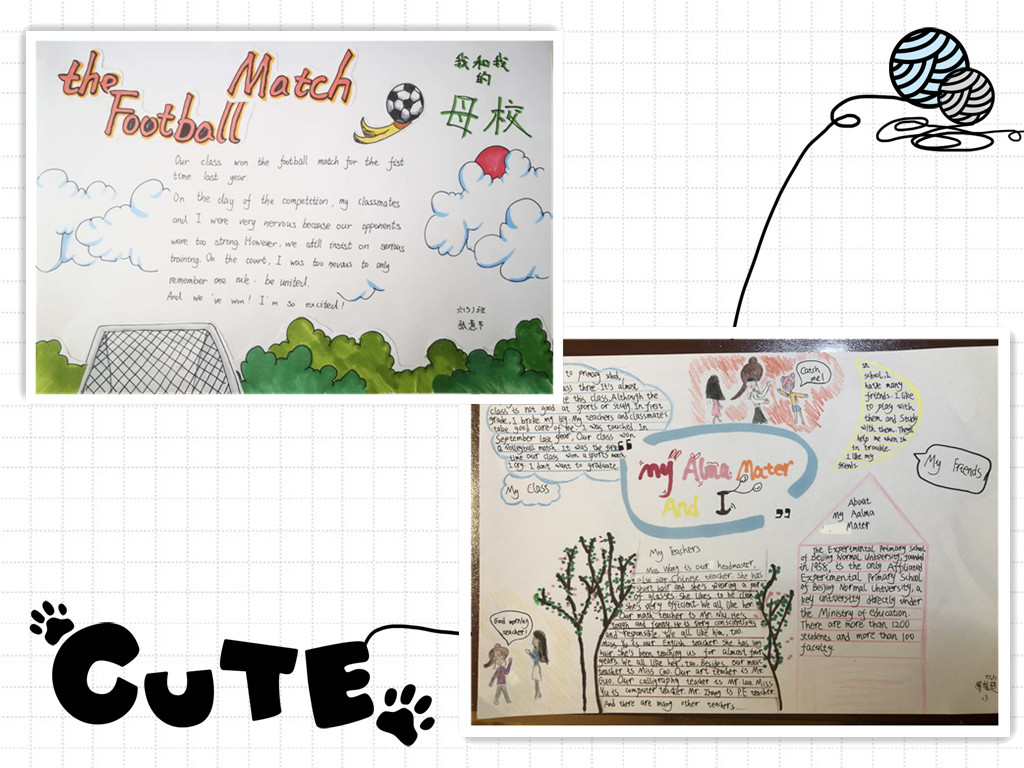 the Match
Football
我和我
的
母校
Our class won the football match for the fist
time last year.
On the day of the competition, my classmates
and I were very nervous because our opponents
were too strong. However, we still insist on serious
training. On the court, I was too nevous to only
remember one rule: be united.
And we 've won! I'm so excited!
六(3)班
to primary shool,
ass three. It's almost
e this class. Although the
class is not good at sports or study. In first
grade, I broke my leg. My teachers and classmates
take good care of me. I was touched. In
September last year, Our class won
a volleyball match. It was the
time our class won a sports
I cry. I don't want to graduate
My Class
Catch
me!
in
school. I
have many
friends. I like
to play with
them and study
with them. They
help me when I'm
in trouble.
I like my
friends
My Friends
“
my Alma Mater
And I
”
About
my Aalma
Mater
The Experimental Primary School
of Beijing Normal University, founded
in 1958, is the only Affiliated
Experimental Primary School
of Beijing Normal University, a
key university directly under
the Ministry of education.
There are more than 1200
students and more than 100
faculty.
My Teachers
Miss Wang is our headmaster,
also our Chinese teacher. She has
short hair and she's wearing a pare
of glasses. She likes to be clean
She's very efficient. We all like her.
Our math teacher is Mr. Wu. He's
tough and funny. He is very conscientious
and responsible. We all like him, too.
Miss Yu is our English teacher. She has long
hair. She's been teaching us for almost four
years. We all like her, too. Besides, our music
teacher is Miss Cao. Our art teacher is Mr.
Guo. Our calligraphy teacher is Mr. Luo. Miss
Yu is computer teacher. Mr. Zhang is P.E teacher.
And there are many other teachers......
Good morning
teacher!
CUTE